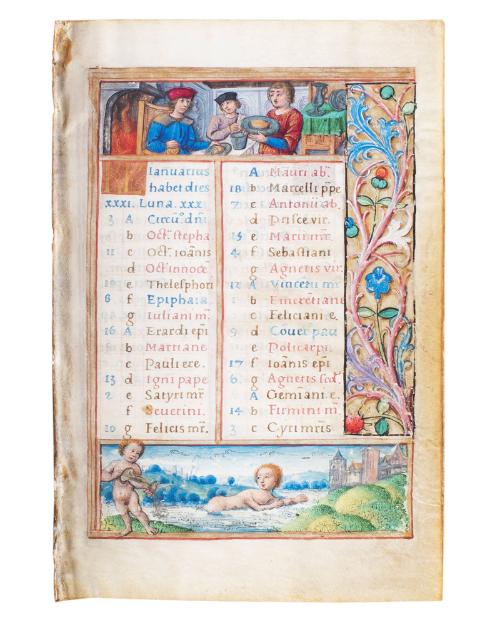 Ianuarius
habet dies
xxxi. Luna. xxx.
3 A Circu͂. dn͂i
b Oct͂. stepha
11 c Oct͂. ioa͂nis
d Oct͂. innoce͂
19 e Thelesphori
8 f Epiphaia
g Iuliani mr͂.
16 A Erardi ep͂i
b Martiane
c Pauli ere.
13 d Igni pape
2 e Satyri mr͂
f Seuerini.
10 g Felicis mr͂.
A Mauri ab͂.
18 b Marcelli p͂pe
7 c Antonii ab.
d Prisce vir.
15 e Marii mr͂.
4 f Sebastiani
g Agnetis vir.
12 A Vince͂ti mr͂
1 b Emerentiane
c Feliciani e.
9 d Co͂uer͂ pau
e Policarpi.
17 f Ioa͂nis ep͂i
6 g Agnetis sc͂d.
A Gemiani e.
14 b Firmini m͂
3 c Cyri mr͂is